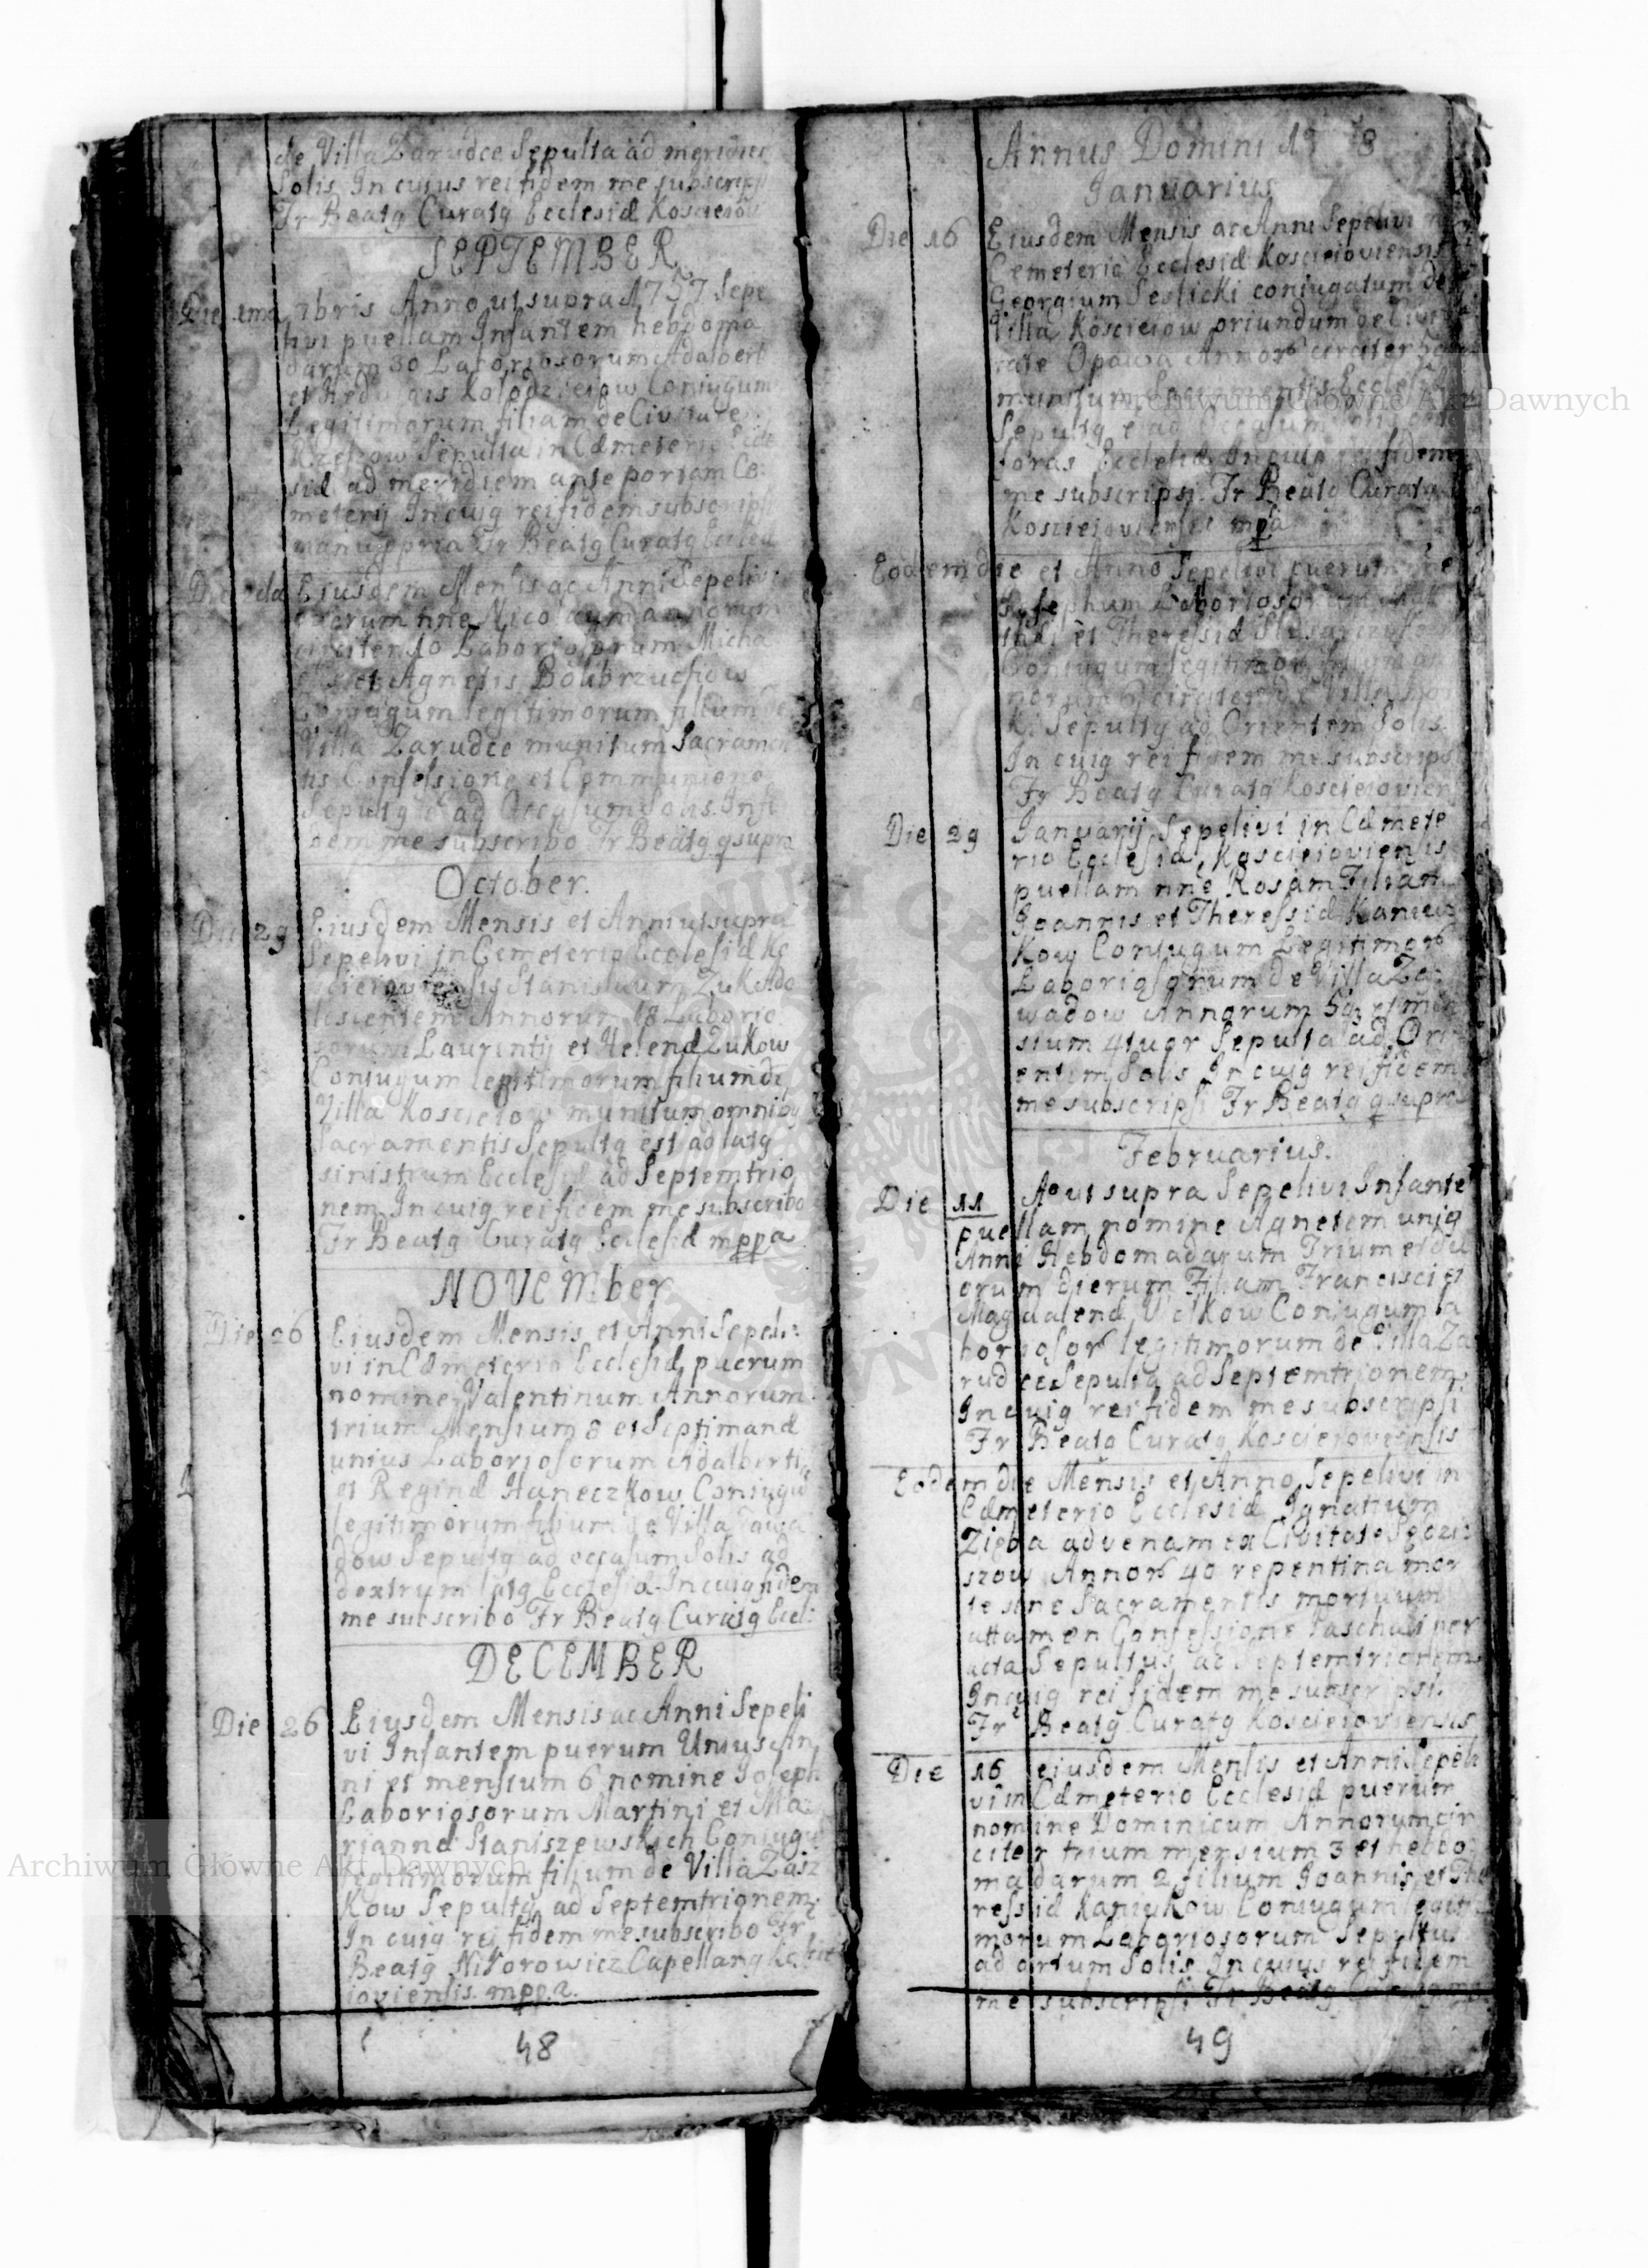 de Villa Zarudce Sepulta ad meridiem
Solis In cuius rei fidem me subscripsi
Fr Beatq Curatq Ecclesiæ Koscieiow
SEPTEMBER
Die 1ma 7bris Anno ut supra 1757 Sepe
livi puellam Infantem hebdoma
darum 30 Laboriosorum Adalberti
et Kolodzieiow Coniugum
Legitimorum filiam de Civitate
Rzeszow Sepulta in Cæmeterio Eccle
siæ ad meridiem ante portam Cæ:
meterij In cuiq rei fidem subscripsi
manu ppria Fr Beatq Curatq Eccles
Die Eiusdem Mensis ac Anni Sepelivi
puerum nne Nicolaum annorum
circiter 10 Laboriosorum Micha
et Agnetis Bolibrzuchow
Coniugum legitimorum filium de
Villa Zarudce munitum Sacramen
tis Confessione et Communione
Sepultq e ad Occasum Solis. In fi
dem me subscribo Fr Beatq q supra
October.
Die 29 Eiusdem Mensis et Anni ut supra
Sepelivi in Cemeterio Ecclesiæ Ko
scieioviensis Stanislaum Zuk Ado
lescentem Annorum 18 Laborio
sorum Laurentij et Helenæ Zukow
Coniugum legitimorum filium de
Villa Koscieiow munitum omnibq
Sacramentis Sepultq est ad latq
sinistrum Ecclesiæ ad Septemtrio
nem In cuiq rei fidem me subscribo
Fr Beatq Curatq Ecclesiæ mppa
NOVEMber
Die 26 Eiusdem Mensis et Anni Sepeli:
vi in Cæmeterio Ecclesiæ puerum
nomine Valentinum Annorum
trium Mensium 8 et Septimanæ
unius Laboriosorum Adalberti
et Reginæ Haneczkow Coniugū
legitimorum filium de Villa Zawa
dow Sepultq ad occasum Solis ad
dextrum latq Ecclesiæ In cuiq fidem
me subscribo Fr Beatq Curatq Eccl:
DECEMBER
Die 26 Eiusdem Mensis ac Anni Sepeli
vi Infantem puerum Unius An
ni et mensium 6 nomine Joseph
Laboriosorum Martini et Ma
riannæ Staniszewskich Coniugū
legitimorum filium de Villa Zaiz
kow Sepultq ad Septemtrionem
In cuiq rei fidem me subscribo Fr
Beatq Nikorowicz Capellanq Koscie
ioviensis mppa.
48
Annus Domini 17 8
Januarius
Die 16 Eiusdem Mensis ac Anni Sepelivi
Cemeterio Ecclesiæ Koscieioviensis
Georgium Seslicki coniugatum de
Villa Koscieiow oriundum de Civi
tate Opawa Annorō circiter
munitum Sacramentis Ecclesiæ
Sepultq e ad Occasum
foras Ecclesiæ In cuiq rei fidem
me subscripsi. Fr Beatq Curatq
Koscieioviensis mpa
Eodem die et Anno Sepelivi puerum nne
Josephum Laboriosorum
et Theressiæ
Coniugum legitimorō
norum circiter de Villa
Sepultq ad Orientem Solis.
In cuiq rei fidem me subscripsi
Fr Beatq Curatq Koscieiovien
Die 29 Januarij Sepelivi in Cæmete
rio Ecclesiæ Koscieioviensis
puellam nne Rosam Filiam
Joannis et Theressiæ Kaniu
kow Coniugum Legitimorō
Laboriosorum de Villa Za
wadow Annorum 5q et men
sium 4tuor Sepulta ad Ori
entem Solis In cuiq rei fidem
me subscripsi Fr Beatq q supra
Februarius.
Die 11 Ao ut supra Sepelivi Infante
puellam nomine Agnetem uniq
Anni Hebdomadarum Trium et du
orum dierum Filiam Francisci et
Magdalenæ Wolkow Coniugum la
boriosorō legitimorum de Villa Za
rudce Sepulta ad Septemtrionem
In cuiq rei fidem me subscripsi
Fr Beatq Curatq Koscieioviensis
Eodem die Mensis et Anno Sepelivi in
Cæmeterio Ecclesiæ Ignatium
Zięba advenam ex Civitate Sędzi
szow Annorō 40 repentina mor
te sine Sacramentis mortuum
attamen Confessione Paschali per
acta Sepultus ad Septemtrionem
In cuiq rei fidem me subscripsi.
Fr Beatq Curatq Koscieioviensis
Die 16 eiusdem Mensis et Anni Sepeli
vi in Cæmeterio Ecclesiæ puerum
nomine Dominicum Annorum cir
citer trium mensium 3 et hebdo
madarum 2 filium Joannis et The
ressiæ Kaniukow Coniugum legiti
morum Laboriosorum Sepultus
ad ortum Solis In cuius rei fidem
me subscripsi Fr Beatq
49
Archiwum Główne Akt Dawnych
Archiwum Główne Akt Dawnych